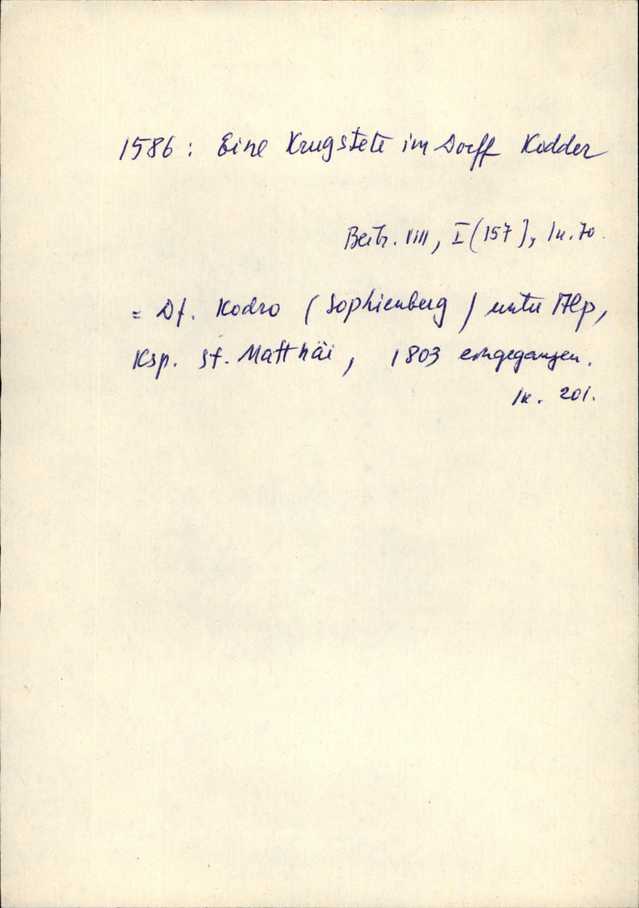 1586: Eine Krugstete im Dorff Kodder
Beitr. VIII, I (157), In. 70.
= Df. Kodro (Sophienberg) unter Alp,
Ksp. St. Matthäi, 1803 eingegangen.
In. 201.